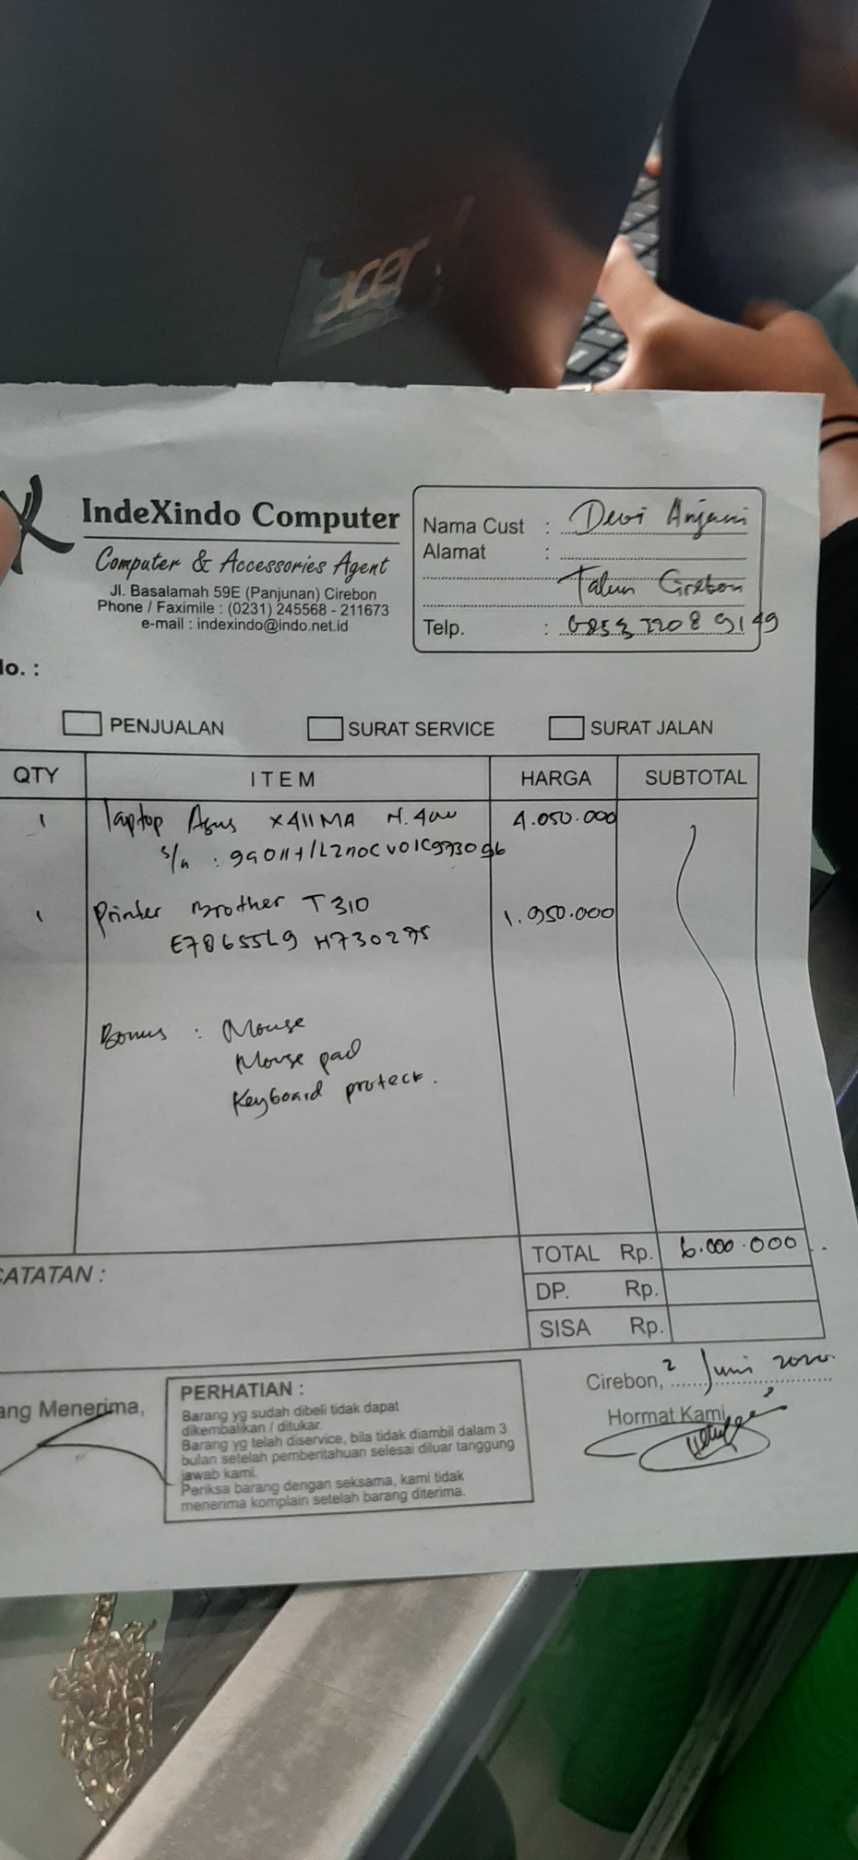 acer
IndeXindo Computer
Computer & Accessories Agent
Jl. Basalamah 59E (Panjunan) Cirebon
Phone / Faximile : (0231) 245568 - 211673
e-mail : indexindo@indo.net.id
Nama Cust : Devi Anjani
Alamat :
Talun Cirebon
Telp. : 0853 2208 9149
No. :
PENJUALAN SURAT SERVICE SURAT JALAN
QTY ITEM HARGA SUBTOTAL
1 laptop Asus X411MA N.400 4.050.000
S/n :
1 Printer Brother T310 1.950.000
E78655L9 H730295
Bonus : Mouse
Mouse pad
Keyboard protect.
TOTAL Rp. 6.000.000
CATATAN :
DP. Rp.
SISA Rp.
Cirebon, 2 Juni 2020
ang Menerima,
Hormat Kami,
PERHATIAN :
Barang yg sudah dibeli tidak dapat
dikembalikan / ditukar.
Barang yg telah diservice, bila tidak diambil dalam 3
bulan setelah pemberitahuan selesai diluar tanggung
jawab kami.
Periksa barang dengan seksama, kami tidak
menerima komplain setelah barang diterima.